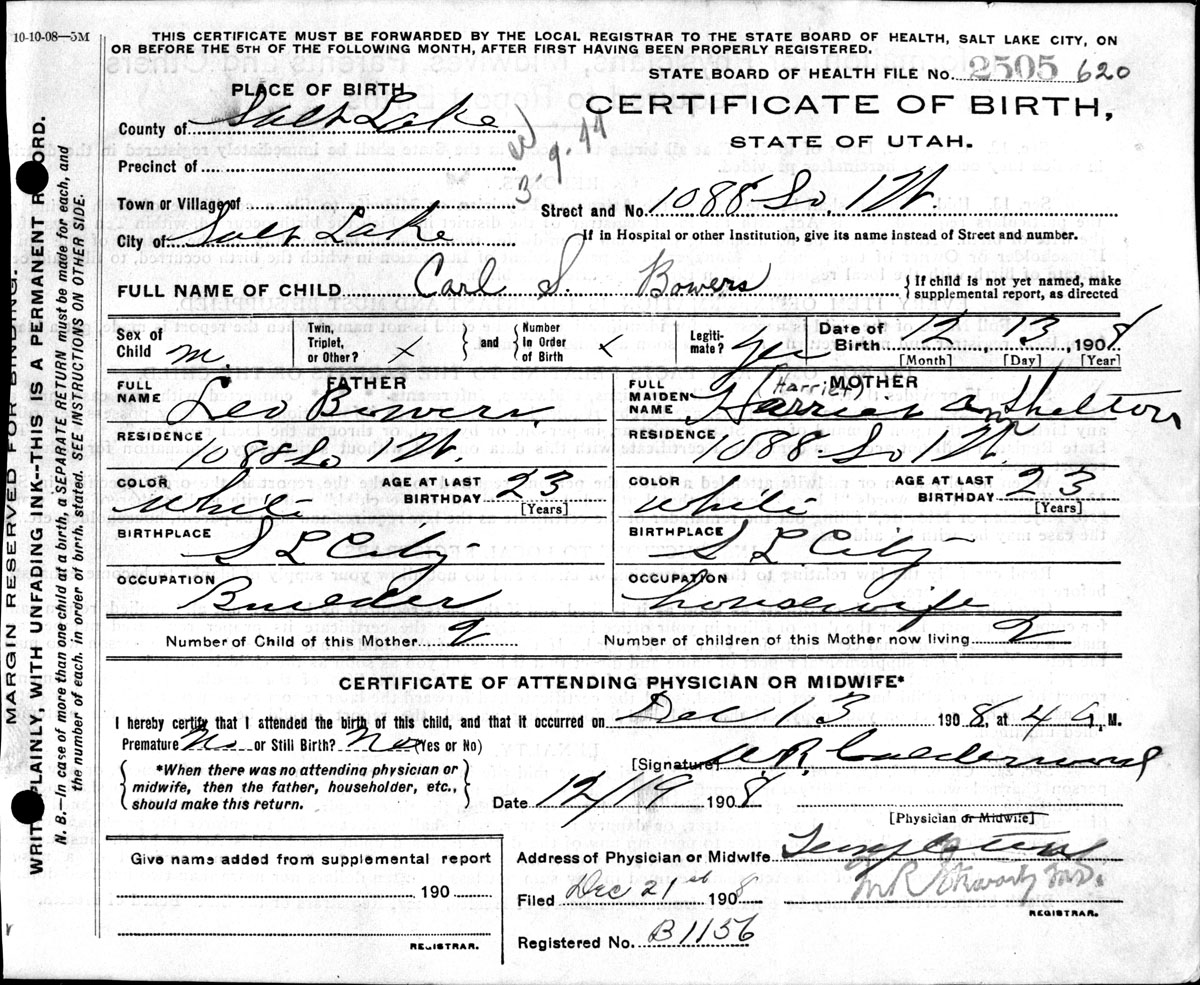 10-10-08—5M
THIS CERTIFICATE MUST BE FORWARDED BY THE LOCAL REGISTRAR TO THE STATE BOARD OF HEALTH, SALT LAKE CITY, ON
OR BEFORE THE 5TH OF THE FOLLOWING MONTH, AFTER FIRST HAVING BEEN PROPERLY REGISTERED.
STATE BOARD OF HEALTH FILE No. 2505 620
PLACE OF BIRTH
CERTIFICATE OF BIRTH,
STATE OF UTAH.
County of Salt Lake
Precinct of
Town or Village of
Street and No. 1088 So, 1 W.
City of Salt Lake
If in Hospital or other Institution, give its name instead of Street and number.
FULL NAME OF CHILD Carl S. Bowers
{ If child is not yet named, make
supplemental report, as directed
Sex of Child m
Twin, Triplet, or Other? x } and { Number In Order of Birth x
Legitimate? Yes
Date of Birth 12 13, 1908
[Month] [Day] [Year]
FATHER
FULL NAME Leo Bowers,
RESIDENCE 1088 So 1 W.
COLOR White
AGE AT LAST BIRTHDAY 23
[Years]
BIRTHPLACE S L City
OCCUPATION
MOTHER
FULL MAIDEN NAME (Harriet Harriet A Shelton
RESIDENCE 1088 So 1 W.
COLOR White
AGE AT LAST BIRTHDAY 23
[Years]
BIRTHPLACE S L City
OCCUPATION housewife
Number of Child of this Mother 2
Number of children of this Mother now living 2
CERTIFICATE OF ATTENDING PHYSICIAN OR MIDWIFE*
I hereby certify that I attended the birth of this child, and that it occurred on Dec 13 1908, at 4 a. M.
Premature No or Still Birth? No (Yes or No)
{ *When there was no attending physician or
midwife, then the father, householder, etc.,
should make this return. }
[Signature]
Date 12/19 1908
[Physician or Midwife]
Give name added from supplemental report
190
REGISTRAR.
Address of Physician or Midwife
Filed Dec 21st 1908
REGISTRAR.
Registered No. B1156
MARGIN RESERVED FOR BINDING.
WRITE PLAINLY, WITH UNFADING INK--THIS IS A PERMANENT RECORD.
N. B.—In case of more than one child at a birth, a SEPARATE RETURN must be made for each, and
the number of each. in order of birth. stated. SEE INSTRUCTIONS ON OTHER SIDE.